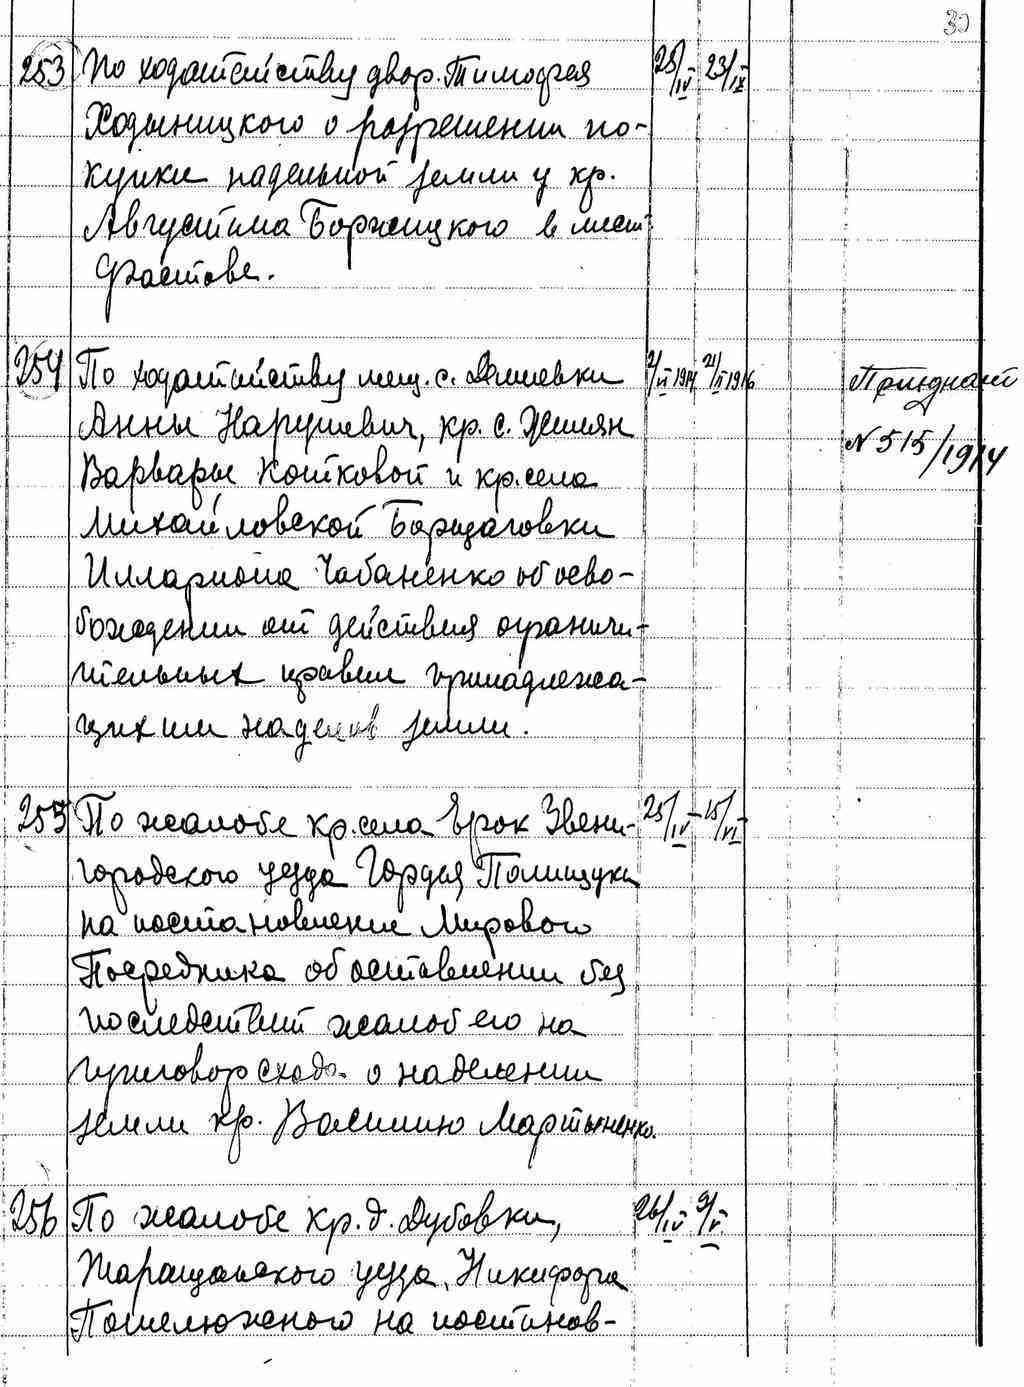 30
253 По ходатайству двор. Тимофея 25/IV 23/IX
Ходыницкого о разрешении по-
купки надельной земли у кр.
Августина Боржицкого в мест.
Фастове.
254 По ходатайству мещ. с. Дашевки 2/VI 1914 21/II 1916
Анны Нарушевич, кр. с. Жилян
Варвары Котковой и кр. села
Михайловской Борщаговки
Иллариона Чабаненко об осво-
бождении от действия ограничи-
тельных правил принадлежа-
щих им наделов земли.
N 515/1914
255 По жалобе кр. села Ерок Звени- 25/IV 15/VI
городского уезда Гордея Полищука
на постановление Мирового
Посредника об оставлении без
последствий жалоб его на
приговор схода о наделении
земли кр. Василию Мартыненко.
256 По жалобе кр. д. Дубовки, 26/IV 9/V
Таращанского уезда, Никифора
на постанов-